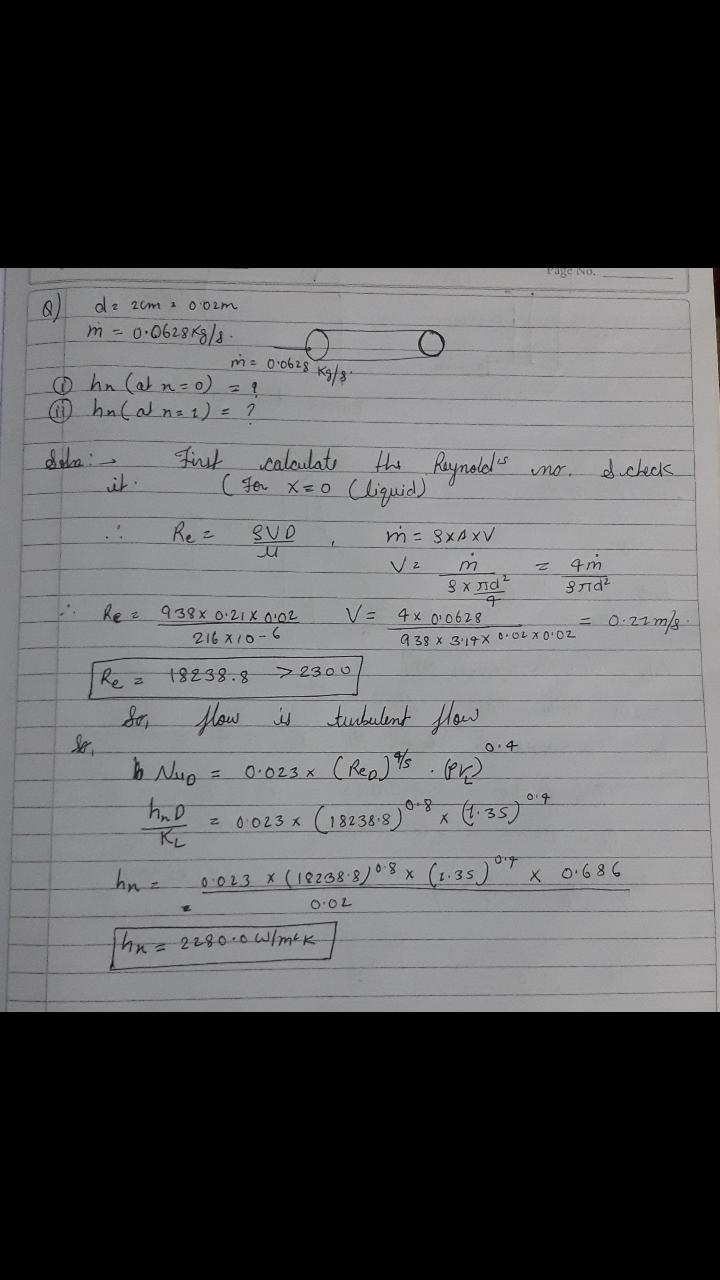 Page No.
Q) d= 2cm = 0.02m
ṁ = 0.0628Kg/s.
ṁ = 0.0628 Kg/s.
(i) hn (at n=0) = ?
(ii) hn (at n=1) = ?
Soln:→ First calculate the Reynold's no. & check
it. (For x=0 (liquid)
∴ Re = ρVD/μ , ṁ = ρ×A×V
V = ṁ/(ρ×πd²/4) = 4ṁ/ρπd²
∴ Re = 938×0.21×0.02/216×10-6 V = 4×0.0628/938×3.14×0.02×0.02 = 0.21m/s.
Re = 18238.8 >2300
So, flow is turbulent flow
So,
NuD = 0.023×(ReD)^4/5 . (PrL)^0.4
hnD/KL = 0.023×(18238.8)^0.8 × (1.35)^0.4
hn = 0.023×(18238.8)^0.8 × (1.35)^0.4 × 0.686/0.02
hn = 2280.0W/m²K